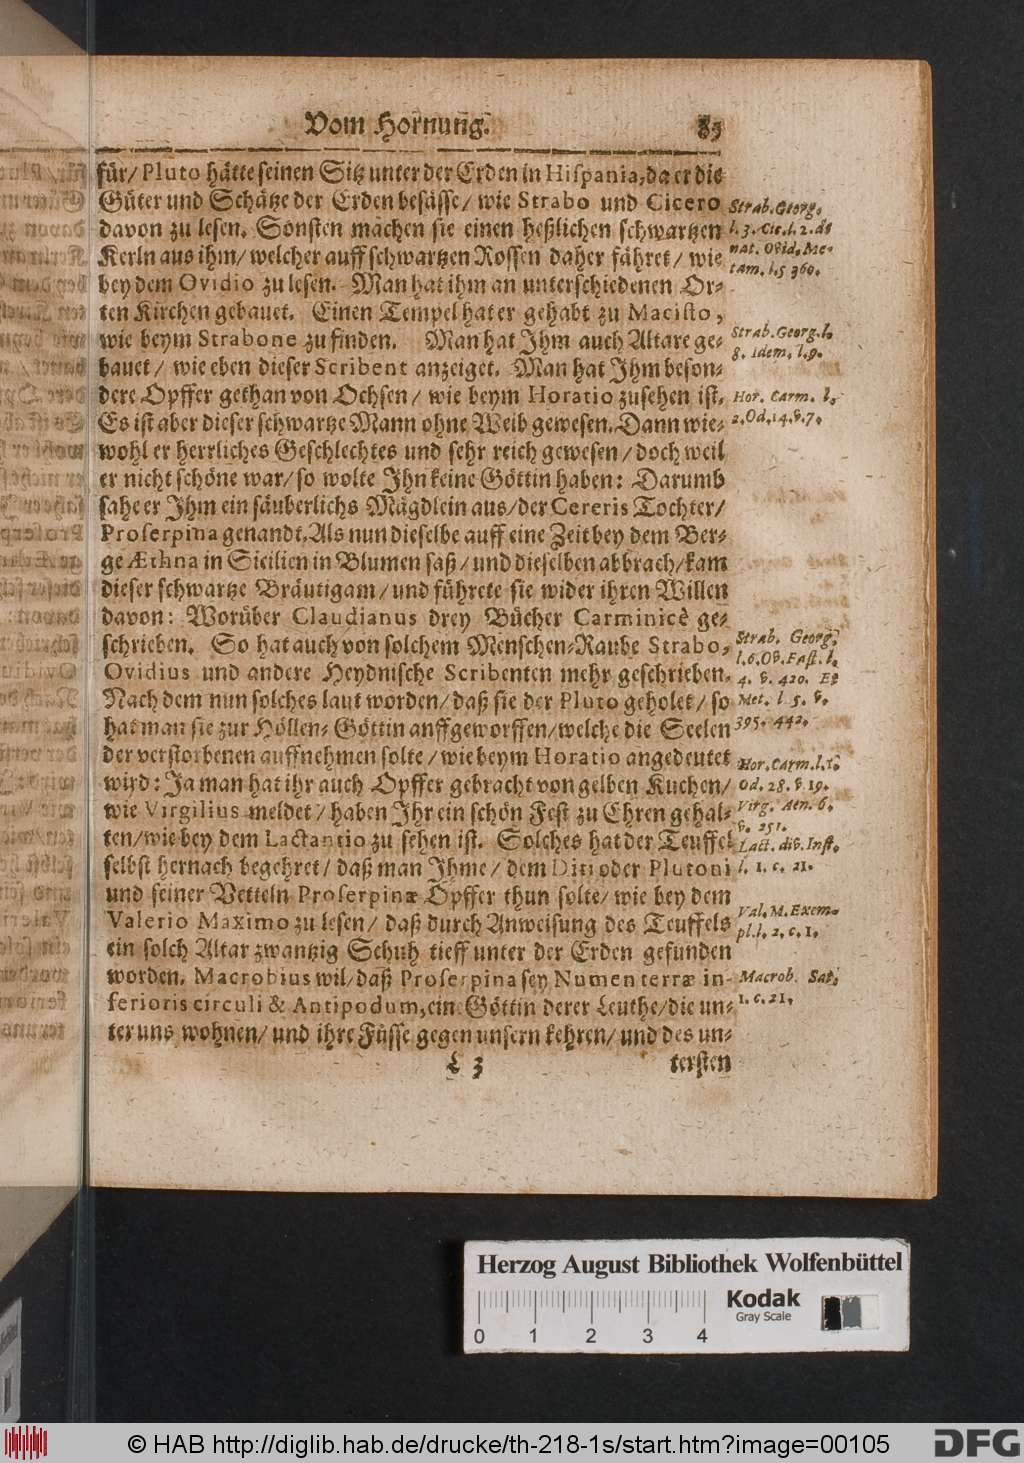 Vom Hornung. 85
für/ Pluto hätte seinen Sitz unter der Erden in Hispania, da er die
Güter und Schätze der Erden besässe/ wie Strabo und Cicero
davon zu lesen. Sonsten machen sie einen heßlichen schwartzen
Kerln aus ihm/ welcher auff schwartzen Rossen daher fähret/ wie
bey dem Ovidio zu lesen. Man hat ihm an unterschiedenen Or-
ten Kirchen gebauet. Einen Tempel hat er gehabt zu Macisto,
wie beym Strabone zu finden. Man hat Jhm auch Altare ge-
bauet/ wie eben dieser Scribent anzeiget. Man hat Jhm beson-
dere Opffer gethan von Ochsen/ wie beym Horatio zusehen ist.
Es ist aber dieser schwartze Mann ohne Weib gewesen. Dann wie-
wohl er herrliches Geschlechtes und sehr reich gewesen/ doch weil
er nicht schöne war/ so wolte Jhn keine Göttin haben: Darumb
sahe er Jhm ein säuberlichs Mägdlein aus/ der Cereris Tochter/
Proserpina genandt. Als nun dieselbe auff eine Zeit bey dem Ber-
ge Æthna in Sicilien in Blumen saß/ und dieselben abbrach/ kam
dieser schwartze Bräutigam/ und führete sie wider ihren Willen
davon: Worüber Claudianus drey Bücher Carminicè ge-
schrieben. So hat auch von solchem Menschen-Raube Strabo,
Ovidius und andere Heydnische Scribenten mehr geschrieben.
Nach dem nun solches laut worden/ daß sie der Pluto geholet/ so
hat man sie zur Höllen-Göttin auffgeworffen/ welche die Seelen
der verstorbenen auffnehmen solte/ wie beym Horatio angedeutet
wird: Ja man hat ihr auch Opffer gebracht von gelben Kuchen/
wie Virgilius meldet/ haben Jhr ein schön Fest zu Ehren gehal-
ten/ wie bey dem Lactantio zu sehen ist. Solches hat der Teuffel
selbst hernach begehret/ daß man Jhme/ dem Diti oder Plutoni
und seiner Vetteln Proserpinæ Opffer thun solte/ wie bey dem
Valerio Maximo zu lesen/ daß durch Anweisung des Teuffels
ein solch Altar zwantzig Schuh tieff unter der Erden gefunden
worden. Macrobius wil/ daß Proserpina sey Numen terræ in-
ferioris circuli & Antipodum, ein Göttin derer Leuthe/ die un-
ter uns wohnen/ und ihre Füsse gegen unsern kehren/ und des un-
L 3 tersten
Strab. Georg.
l. 3. Cic. l. 2. de
nat. Ovid. Me-
tam. l. 5 360.
Strab. Georg. l.
8. idem. l. 9.
Hor. Carm. l.
2. Od. 14. v. 7.
Strab. Georg.
l. 6. Ov. Fast. l.
4. v. 420. Et
Met. l 5. v.
395. 442.
Hor. Carm. l. 1.
Od. 28. v. 19.
Virg. Aen. 6.
v. 251.
Lact. div. Inst.
l. 1. c. 21.
Val. M. Exem-
pl. l. 2. c. 1.
Macrob. Sat.
1. c. 21.
Herzog August Bibliothek Wolfenbüttel
Kodak
Gray Scale
0 1 2 3 4
© HAB http://diglib.hab.de/drucke/th-218-1s/start.htm?image=00105
DFG